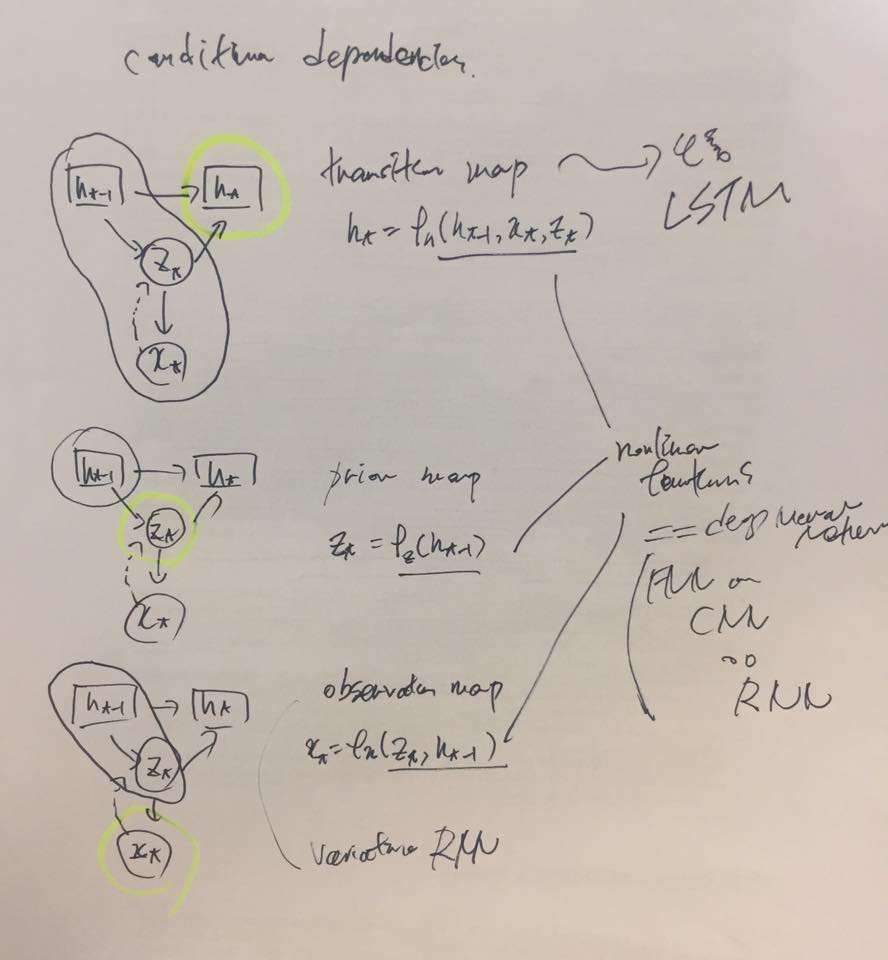 condition dependencies.
h t-1
h t
z t
x t
transition map
h t = f h (h t-1, x t, z t)
LSTM
h t-1
h t
z t
x t
prior map
z t = f z (h t-1)
nonlinear
functions
== deep neural
network
FNN or
CNN
or
RNN
h t-1
h t
z t
x t
observation map
x t = f x (z t, h t-1)
variational RNN